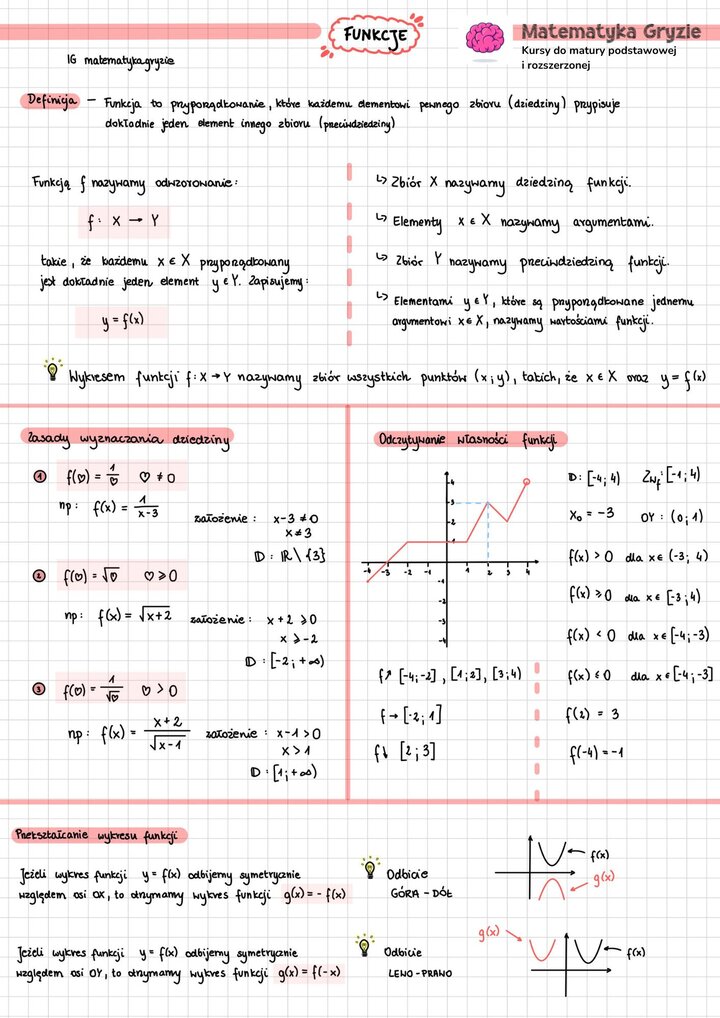 FUNKCJE
Matematyka Gryzie
Kursy do matury podstawowej
i rozszerzonej
IG matematykagryzie
Definicja — Funkcja to przyporządkowanie, które każdemu elementowi pewnego zbioru (dziedziny) przypisuje
dokładnie jeden element innego zbioru (przeciwdziedziny)
Funkcją f nazywamy odwzorowanie:
f: X → Y
takie, że każdemu x ∈ X przyporządkowany
jest dokładnie jeden element y ∈ Y. Zapisujemy:
y = f(x)
↳ Zbiór X nazywamy dziedziną funkcji.
↳ Elementy x ∈ X nazywamy argumentami.
↳ Zbiór Y nazywamy przeciwdziedziną funkcji.
↳ Elementami y ∈ Y, które są przyporządkowane jednemu
argumentowi x ∈ X, nazywamy wartościami funkcji.
Wykresem funkcji f: X → Y nazywamy zbiór wszystkich punktów (x; y), takich, że x ∈ X oraz y = f(x)
Zasady wyznaczania dziedziny
1 f(♡) = 1/♡ ♡ ≠ 0
np: f(x) = 1/(x-3)
założenie: x-3 ≠ 0
x ≠ 3
D: ℝ \ {3}
2 f(♡) = √♡ ♡ ⩾ 0
np: f(x) = √(x+2) założenie: x+2 ⩾ 0
x ⩾ -2
D: [-2; +∞)
3 f(♡) = 1/√♡ ♡ > 0
np: f(x) = (x+2)/√(x-1) założenie: x-1 > 0
x > 1
D: (1; +∞)
Odczytywanie własności funkcji
4
3
2
1
-4 -3 -2 -1 1 2 3 4
-1
-2
-3
-4
f↗ [-4;-2], [1;2], [3;4)
f→ [-2;1]
f↓ [2;3]
D: [-4; 4) ZWf: [-1; 4)
x₀ = -3 OY: (0; 1)
f(x) > 0 dla x ∈ (-3; 4)
f(x) ⩾ 0 dla x ∈ [-3; 4)
f(x) < 0 dla x ∈ [-4; -3)
f(x) ⩽ 0 dla x ∈ [-4; -3]
f(2) = 3
f(-4) = -1
Przekształcanie wykresu funkcji
Jeżeli wykres funkcji y = f(x) odbijemy symetrycznie
względem osi OX, to otrzymamy wykres funkcji g(x) = - f(x)
Odbicie
GÓRA - DÓŁ
f(x)
g(x)
Jeżeli wykres funkcji y = f(x) odbijemy symetrycznie
względem osi OY, to otrzymamy wykres funkcji g(x) = f(-x)
Odbicie
LEWO - PRAWO
g(x)
f(x)